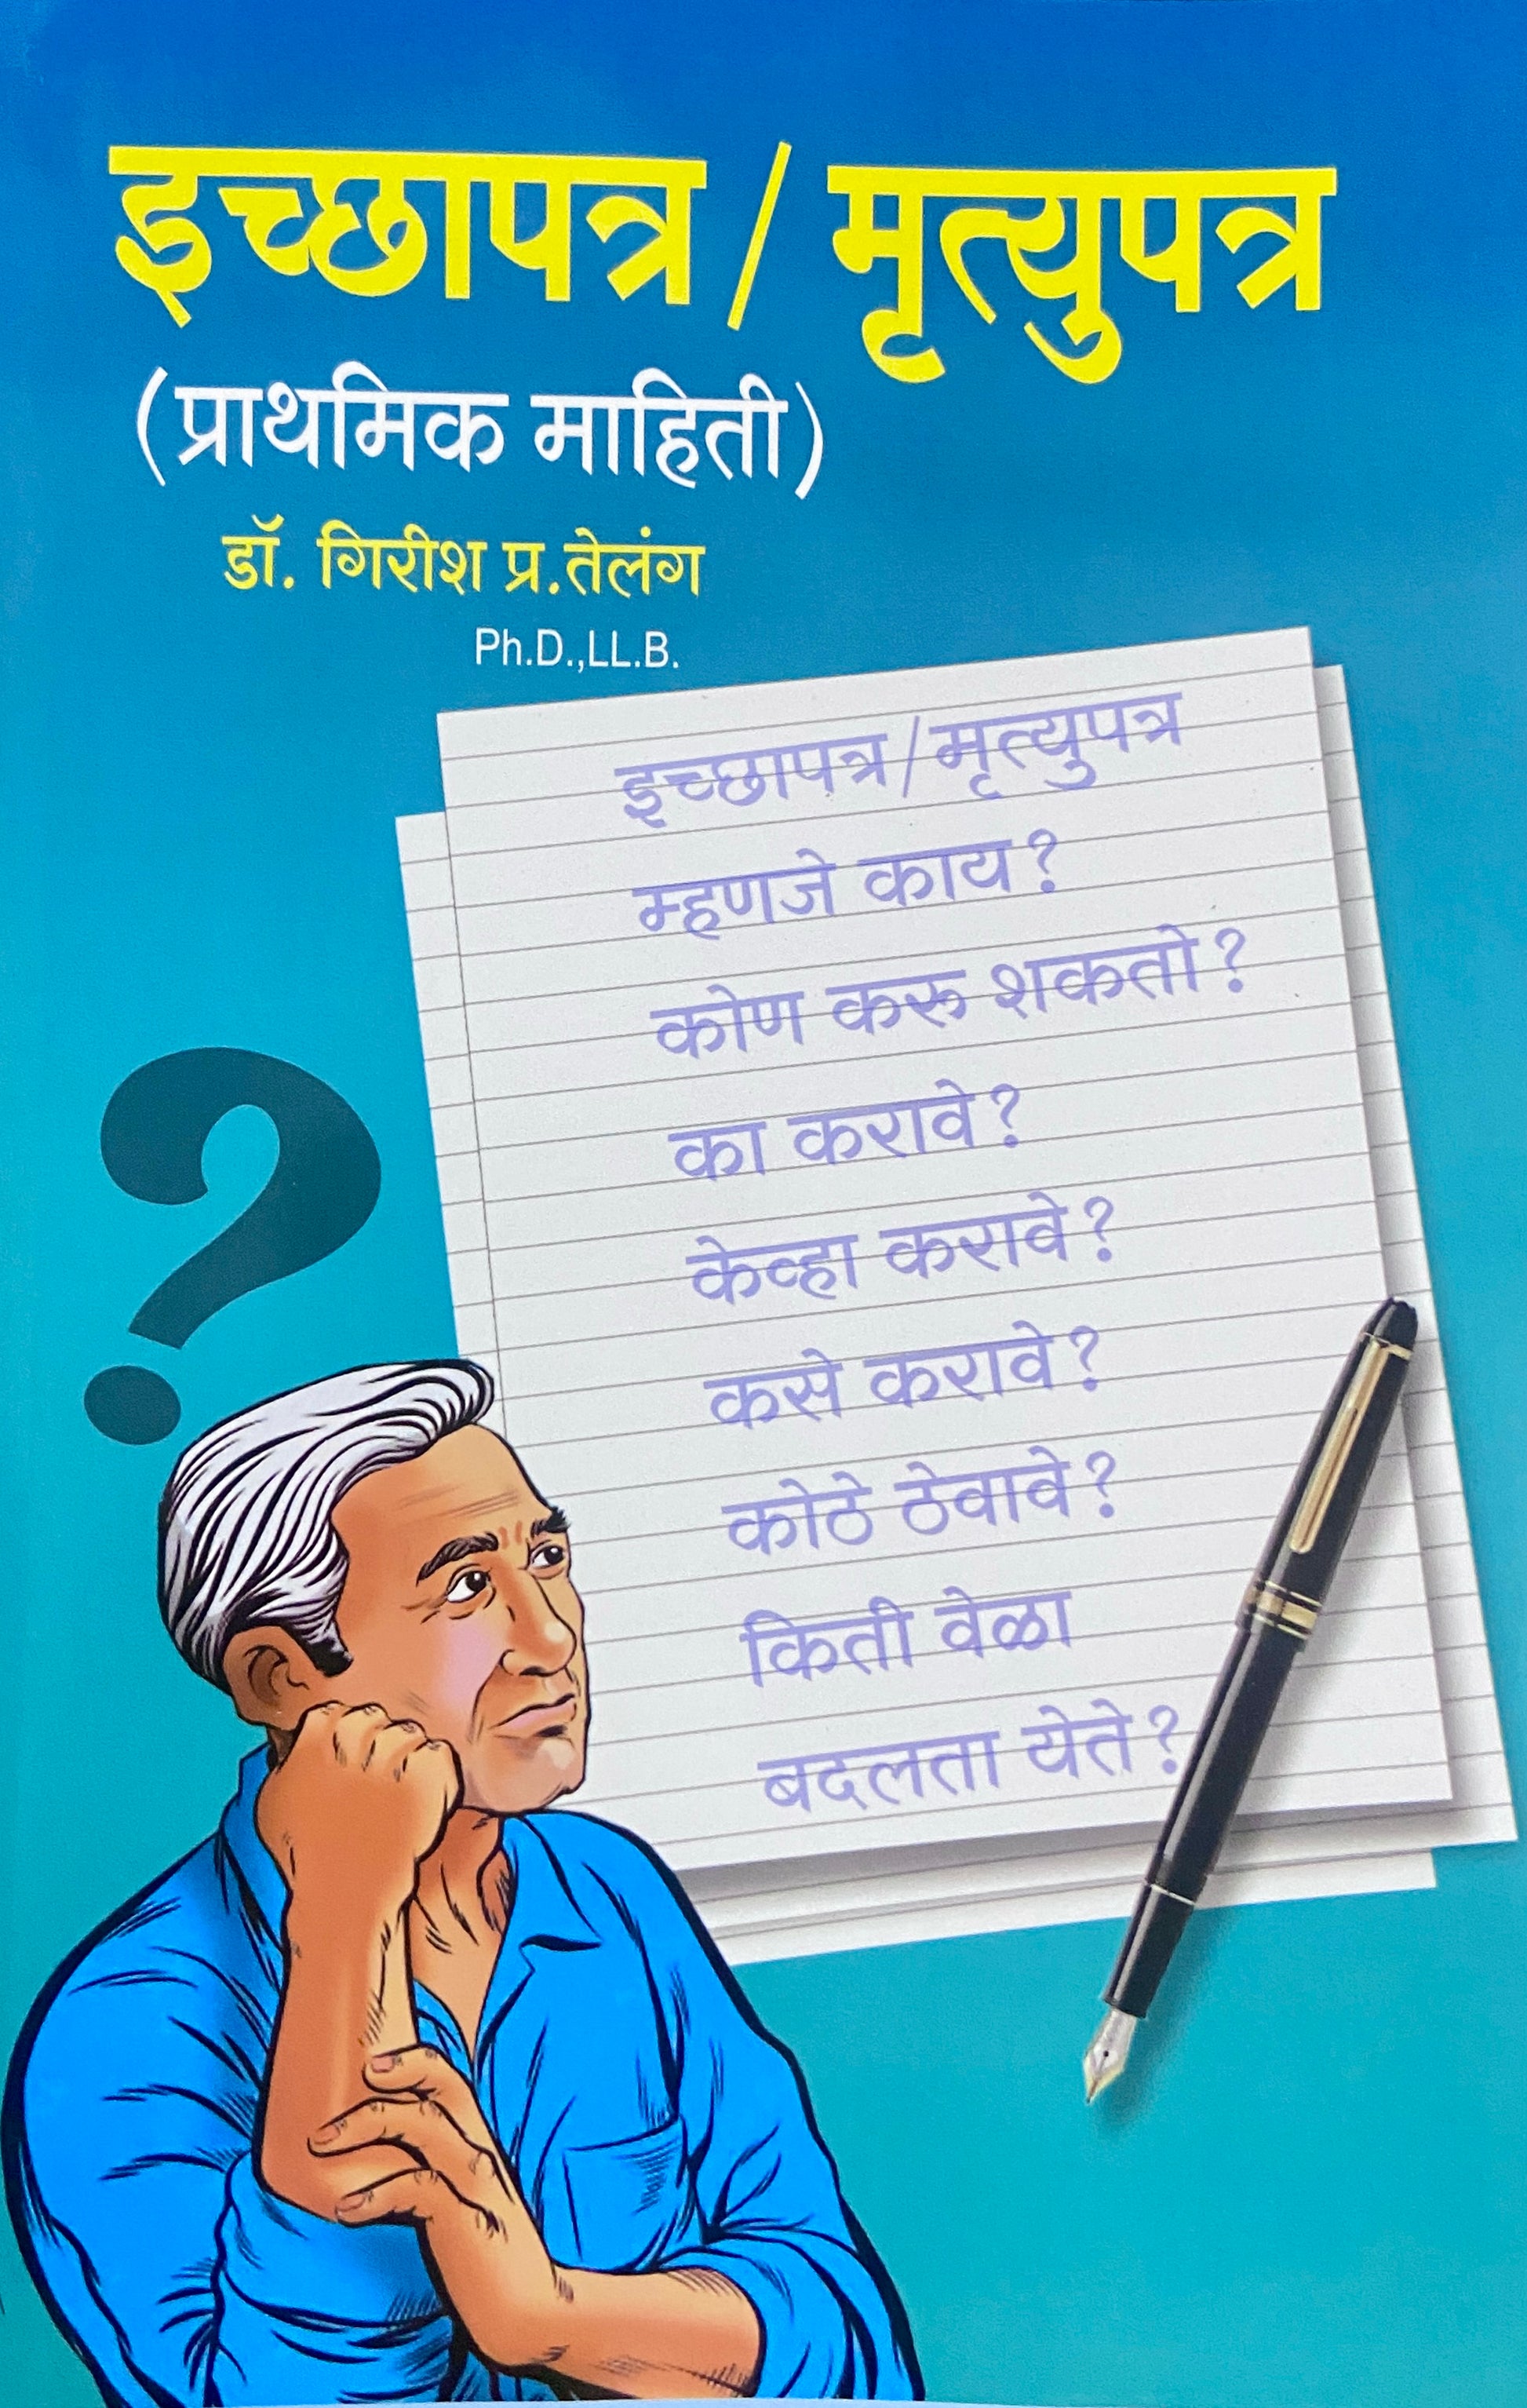 इच्छापत्र / मृत्युपत्र
(प्राथमिक माहिती)
डॉ. गिरीश प्र.तेलंग
Ph.D.,LL.B.
इच्छापत्र/मृत्युपत्र
म्हणजे काय?
कोण करू शकतो?
का करावे?
केव्हा करावे?
कसे करावे?
कोठे ठेवावे?
किती वेळा
बदलता येते?